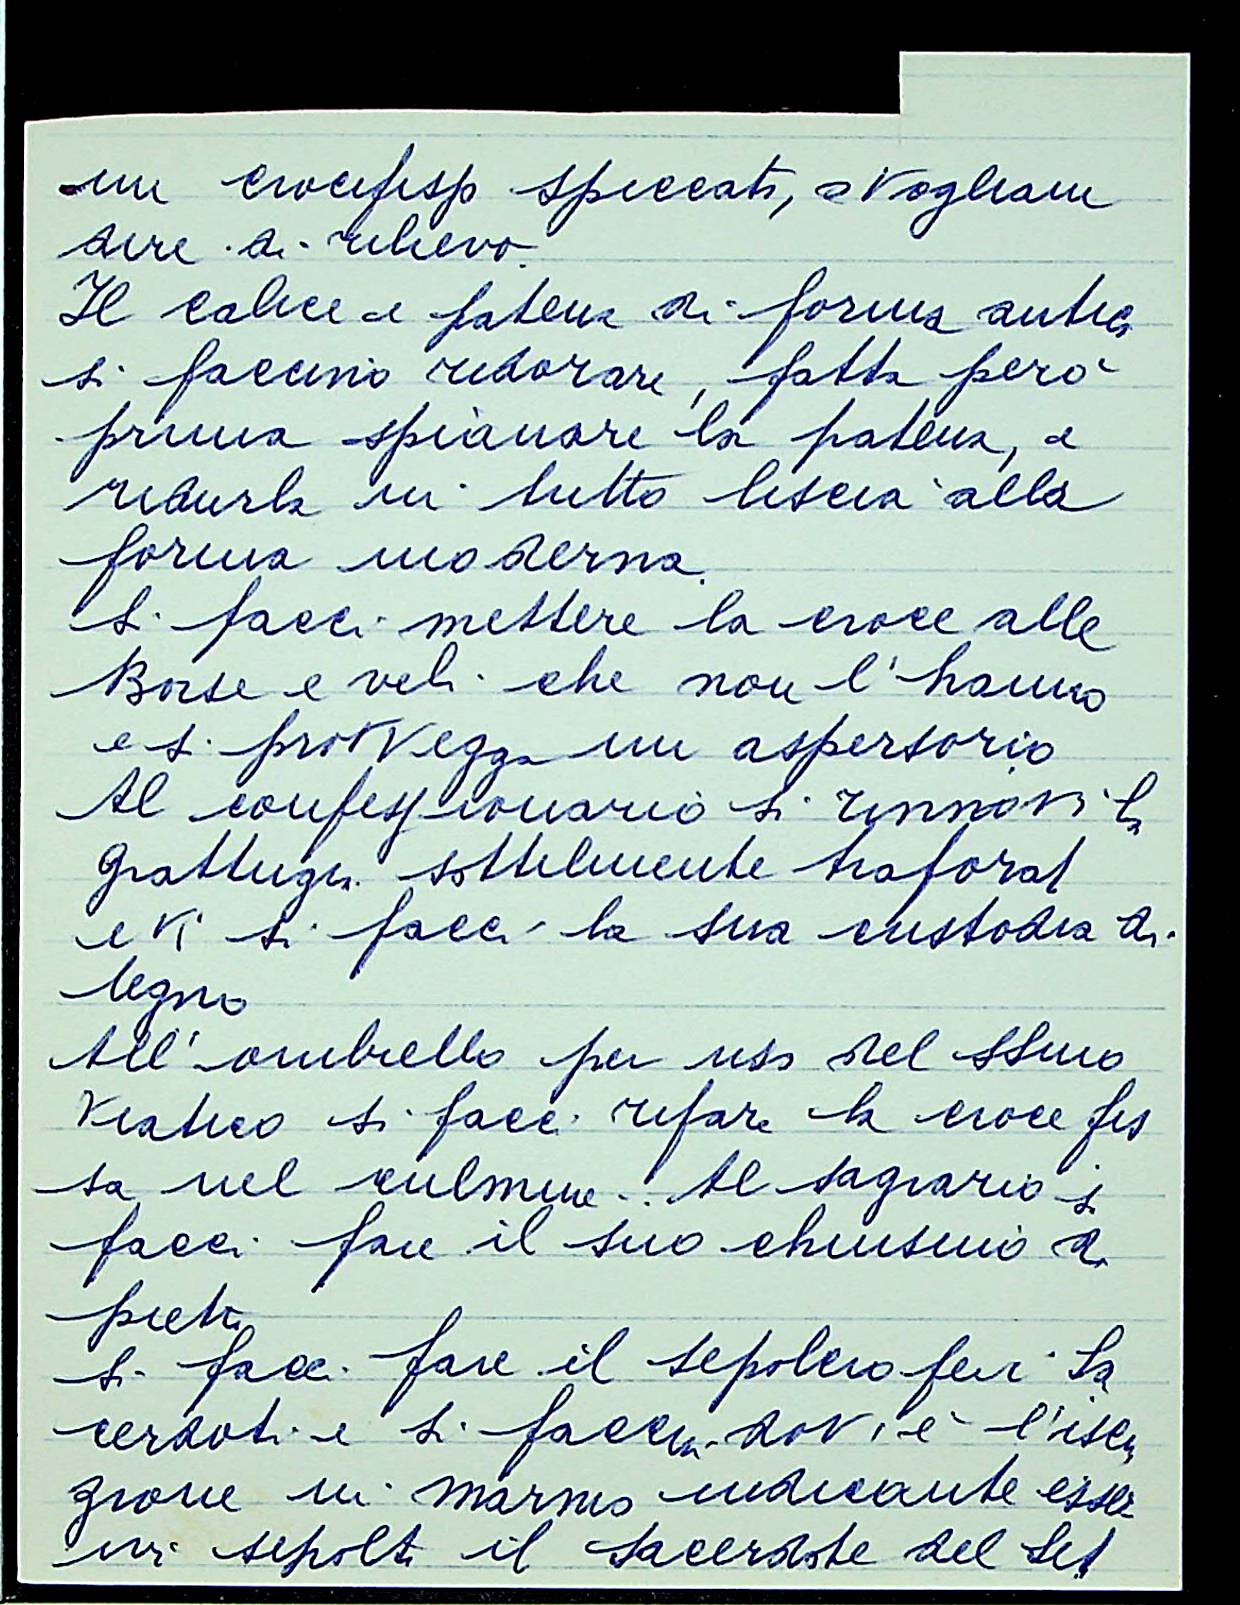 un crocifisso spiccato, o vogliam
dire di rilievo.
Il calice e patena di forma antica
si faccino ridorare, fatta però
prima spianare la patena, e
ridurla in tutto liscia alla
forma moderna.
Si facci mettere la croce alle
Borse e veli che non l'hanno
e si provvegga un aspersorio
Al confessionario si rinnovi la
grattugia sottilmente traforat
e vi si facci la sua custodia di
legno
All'ombrello per uso del SSmo
Viatico si facci rifare la croce fis
sa nel culmine. Al sagrario si
facci fare il suo chiusino di
pietra
Si facci fare il sepolcro per i Sa
cerdoti e si faccia dov'è l'iscri
zione in marmo indicante esser
ivi sepolto il sacerdote del Set